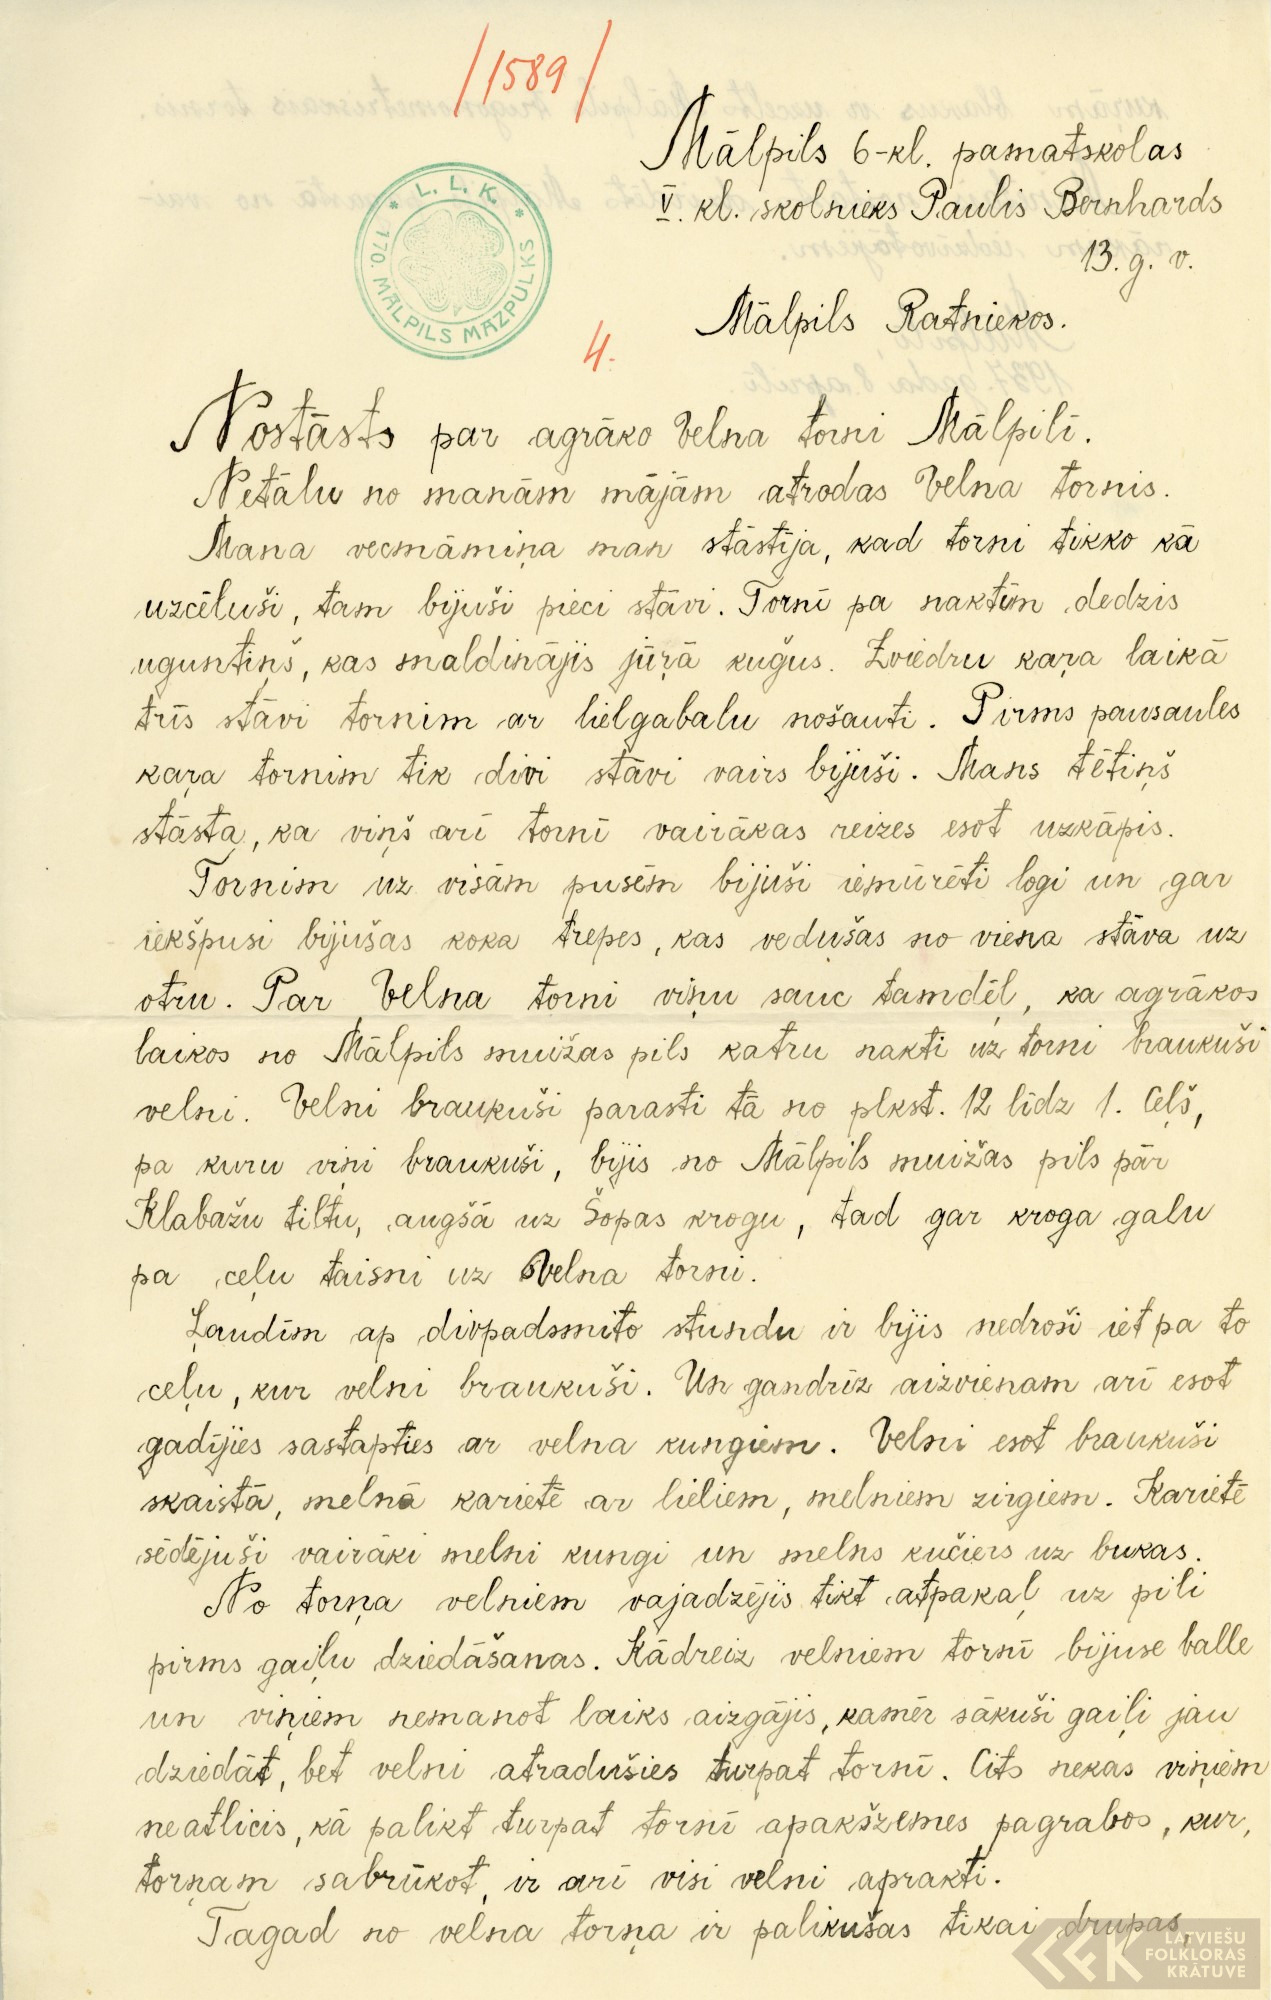 /1589/
Mālpils 6-kl. pamatskolas
V. kl. skolnieks Paulis Bernhards
13. g. v.
Mālpils Ratniekos.
* L. L. K. *
170. MĀLPILS MAZPULKS
4.
Nostāsts par agrāko Velna torni Mālpilī.
Netālu no manām mājām atrodas Velna tornis.
Mana vecmāmiņa man stāstīja, kad torni tikko kā
uzcēluši, tam bijuši pieci stāvi. Tornī pa naktīm dedzis
uguntiņš, kas maldinājis jūŗā kuģus. Zviedru kaŗa laikā
trīs stāvi tornim ar lielgabalu nošauti. Pirms pausaules
kaŗa tornim tik divi stāvi vairs bijuši. Mans tētiņš
stāsta, ka viņš arī tornī vairākas reizes esot uzkāpis.
Tornim uz visām pusēm bijuši iemūrēti logi un gar
iekšpusi bijušas koka trepes, kas vedušas no viena stāva uz
otru. Par Velna torni viņu sauc tamdēļ, ka agrākos
laikos no Mālpils muižas pils katru nakti uz torni braukuši
velni. Velni braukuši parasti tā no plkst. 12 līdz 1. Ceļš,
pa kuru viņi braukuši, bijis no Mālpils muižas pils pār
Klabažu tiltu, augšā uz Šopas krogu, tad gar kroga galu
pa ceļu taisni uz Velna torni.
Ļaudīm ap divpadsmito stundu ir bijis nedroši iet pa to
ceļu, kur velni braukuši. Un gandrīz aizvienam arī esot
gadījies sastapties ar velna kungiem. Velni esot braukuši
skaistā, melnā karietē ar lieliem, melniem zirgiem. Karietē
sēdējuši vairāki melni kungi un melns kučiers uz bukas.
No torņa velniem vajadzējis tikt atpakaļ uz pili
pirms gaiļu dziedāšanas. Kādreiz velniem tornī bijuse balle
un viņiem nemanot laiks aizgājis, kamēr sākuši gaiļi jau
dziedāt, bet velni atradušies turpat tornī. Cits nekas viņiem
neatlicis, kā palikt turpat tornī apakšzemes pagrabos, kur,
torņam sabrūkot, ir arī visi velni aprakti.
Tagad no velna torņa ir palikušas tikai drupas,
LATVIEŠU
FOLKLORAS
KRĀTUVE